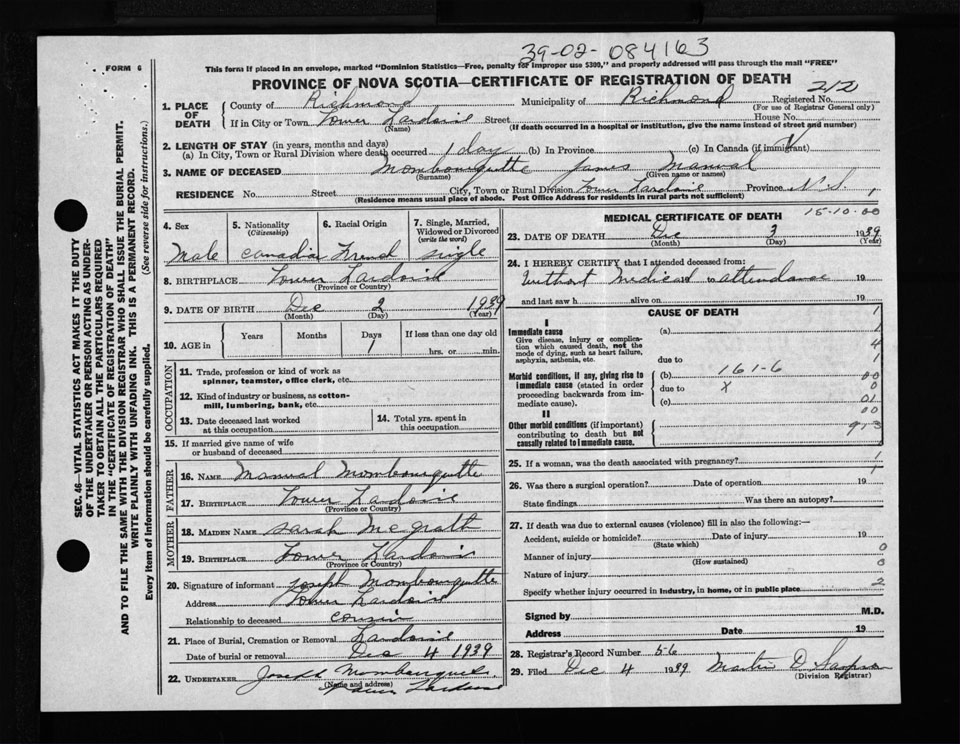 39-02-084163
FORM 6
This form if placed in an envelope, marked "Dominion Statistics—Free, penalty for improper use $300," and properly addressed will pass through the mail "FREE"
PROVINCE OF NOVA SCOTIA—CERTIFICATE OF REGISTRATION OF DEATH
212
1. PLACE OF DEATH County of Richmond Municipality of Richmond Registered No.
(For use of Registrar General only)
If in City or Town Lower Lardoise Street House No.
(Name) (If death occurred in a hospital or institution, give the name instead of street and number)
2. LENGTH OF STAY (in years, months and days)
(a) In City, Town or Rural Division where death occurred 1 day (b) In Province (c) In Canada (if immigrant)
3. NAME OF DECEASED Mombourquette James Manual
(Surname) (Given name or names)
RESIDENCE No. Street City, Town or Rural Division Lower Lardoise Province N.S.
(Residence means usual place of abode. Post Office Address for residents in rural parts not sufficient)
4. Sex 5. Nationality (Citizenship) 6. Racial Origin 7. Single, Married, Widowed or Divorced (write the word)
Male Canadian French single
8. BIRTHPLACE Lower Lardoise
(Province or Country)
9. DATE OF BIRTH Dec 2 1939
(Month) (Day) (Year)
10. AGE in Years Months Days If less than one day old
1 hrs. or min.
OCCUPATION
11. Trade, profession or kind of work as spinner, teamster, office clerk, etc.
12. Kind of industry or business, as cotton-mill, lumbering, bank, etc.
13. Date deceased last worked at this occupation 14. Total yrs. spent in this occupation
15. If married give name of wife or husband of deceased
FATHER
16. NAME Manual Mombourquette
17. BIRTHPLACE Lower Lardoise
(Province or Country)
MOTHER
18. MAIDEN NAME Sarah McGrath
19. BIRTHPLACE Lower Lardoise
(Province or Country)
20. Signature of informant Joseph Mombourquette
Address Lower Lardoise
Relationship to deceased cousin
21. Place of Burial, Cremation or Removal Lardoise
Date of burial or removal Dec 4 1939
22. UNDERTAKER Joseph Mombourquette
(Name and address)
Lower Lardoise
MEDICAL CERTIFICATE OF DEATH 15-10-00
23. DATE OF DEATH Dec 3 1939
(Month) (Day) (Year)
24. I HEREBY CERTIFY that I attended deceased from:
Without Medical attendance 19
and last saw h alive on 19
CAUSE OF DEATH
I
Immediate cause (a)
Give disease, injury or complication which caused death, not the mode of dying, such as heart failure, asphyxia, asthenia, etc.
due to
Morbid conditions, if any, giving rise to immediate cause (stated in order proceeding backwards from immediate cause).
(b) 161-6
due to X
(c)
II
Other morbid conditions (if important) contributing to death but not causally related to immediate cause.
1
1
4
1
00
0
01
00
913
25. If a woman, was the death associated with pregnancy? 1
26. Was there a surgical operation? Date of operation 19
State findings Was there an autopsy?
27. If death was due to external causes (violence) fill in also the following:—
Accident, suicide or homicide? Date of injury 19
(State which)
0
Manner of injury
(How sustained)
0
Nature of injury
2
Specify whether injury occurred in industry, in home, or in public place
Signed by M.D.
Address Date 19
28. Registrar's Record Number 56
29. Filed Dec 4 1939 Martin D Sampson
(Division Registrar)
SEC. 46—VITAL STATISTICS ACT MAKES IT THE DUTY
OF THE UNDERTAKER OR PERSON ACTING AS UNDER-
TAKER TO OBTAIN ALL THE PARTICULARS REQUIRED
IN THE "CERTIFICATE OF REGISTRATION OF DEATH"
AND TO FILE THE SAME WITH THE DIVISION REGISTRAR WHO SHALL ISSUE THE BURIAL PERMIT.
WRITE PLAINLY WITH UNFADING INK. THIS IS A PERMANENT RECORD.
Every item of information should be carefully supplied. (See reverse side for instructions.)